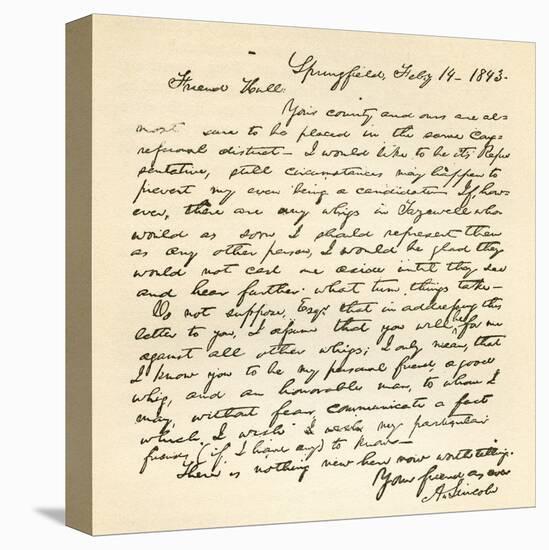 Springfield, Feby 14- 1843-
Friend Hull:
Your county and ours are al-
most sure to be placed in the same Con-
gressional district- I would like to be its Repre
sentative, still circumstances may happen to
prevent my even being a candidate- If, how-
ever, there are any whigs in Tazewell who
would as soon I should represent them
as any other person, I would be glad they
would not cast me aside until they see
and hear further what turn things take-
Do not suppose, Esqr that in addressing this
letter to you, I assume that you will be for me
against all other whigs; I only mean, that
I know you to be my personal friend, a good
whig, and an honorable man, to whom I
may, without fear, communicate a fact
which I wish my particular
friends (if I have any) to know-
There is nothing new here now worth telling.
Your friend as ever
A. Lincoln